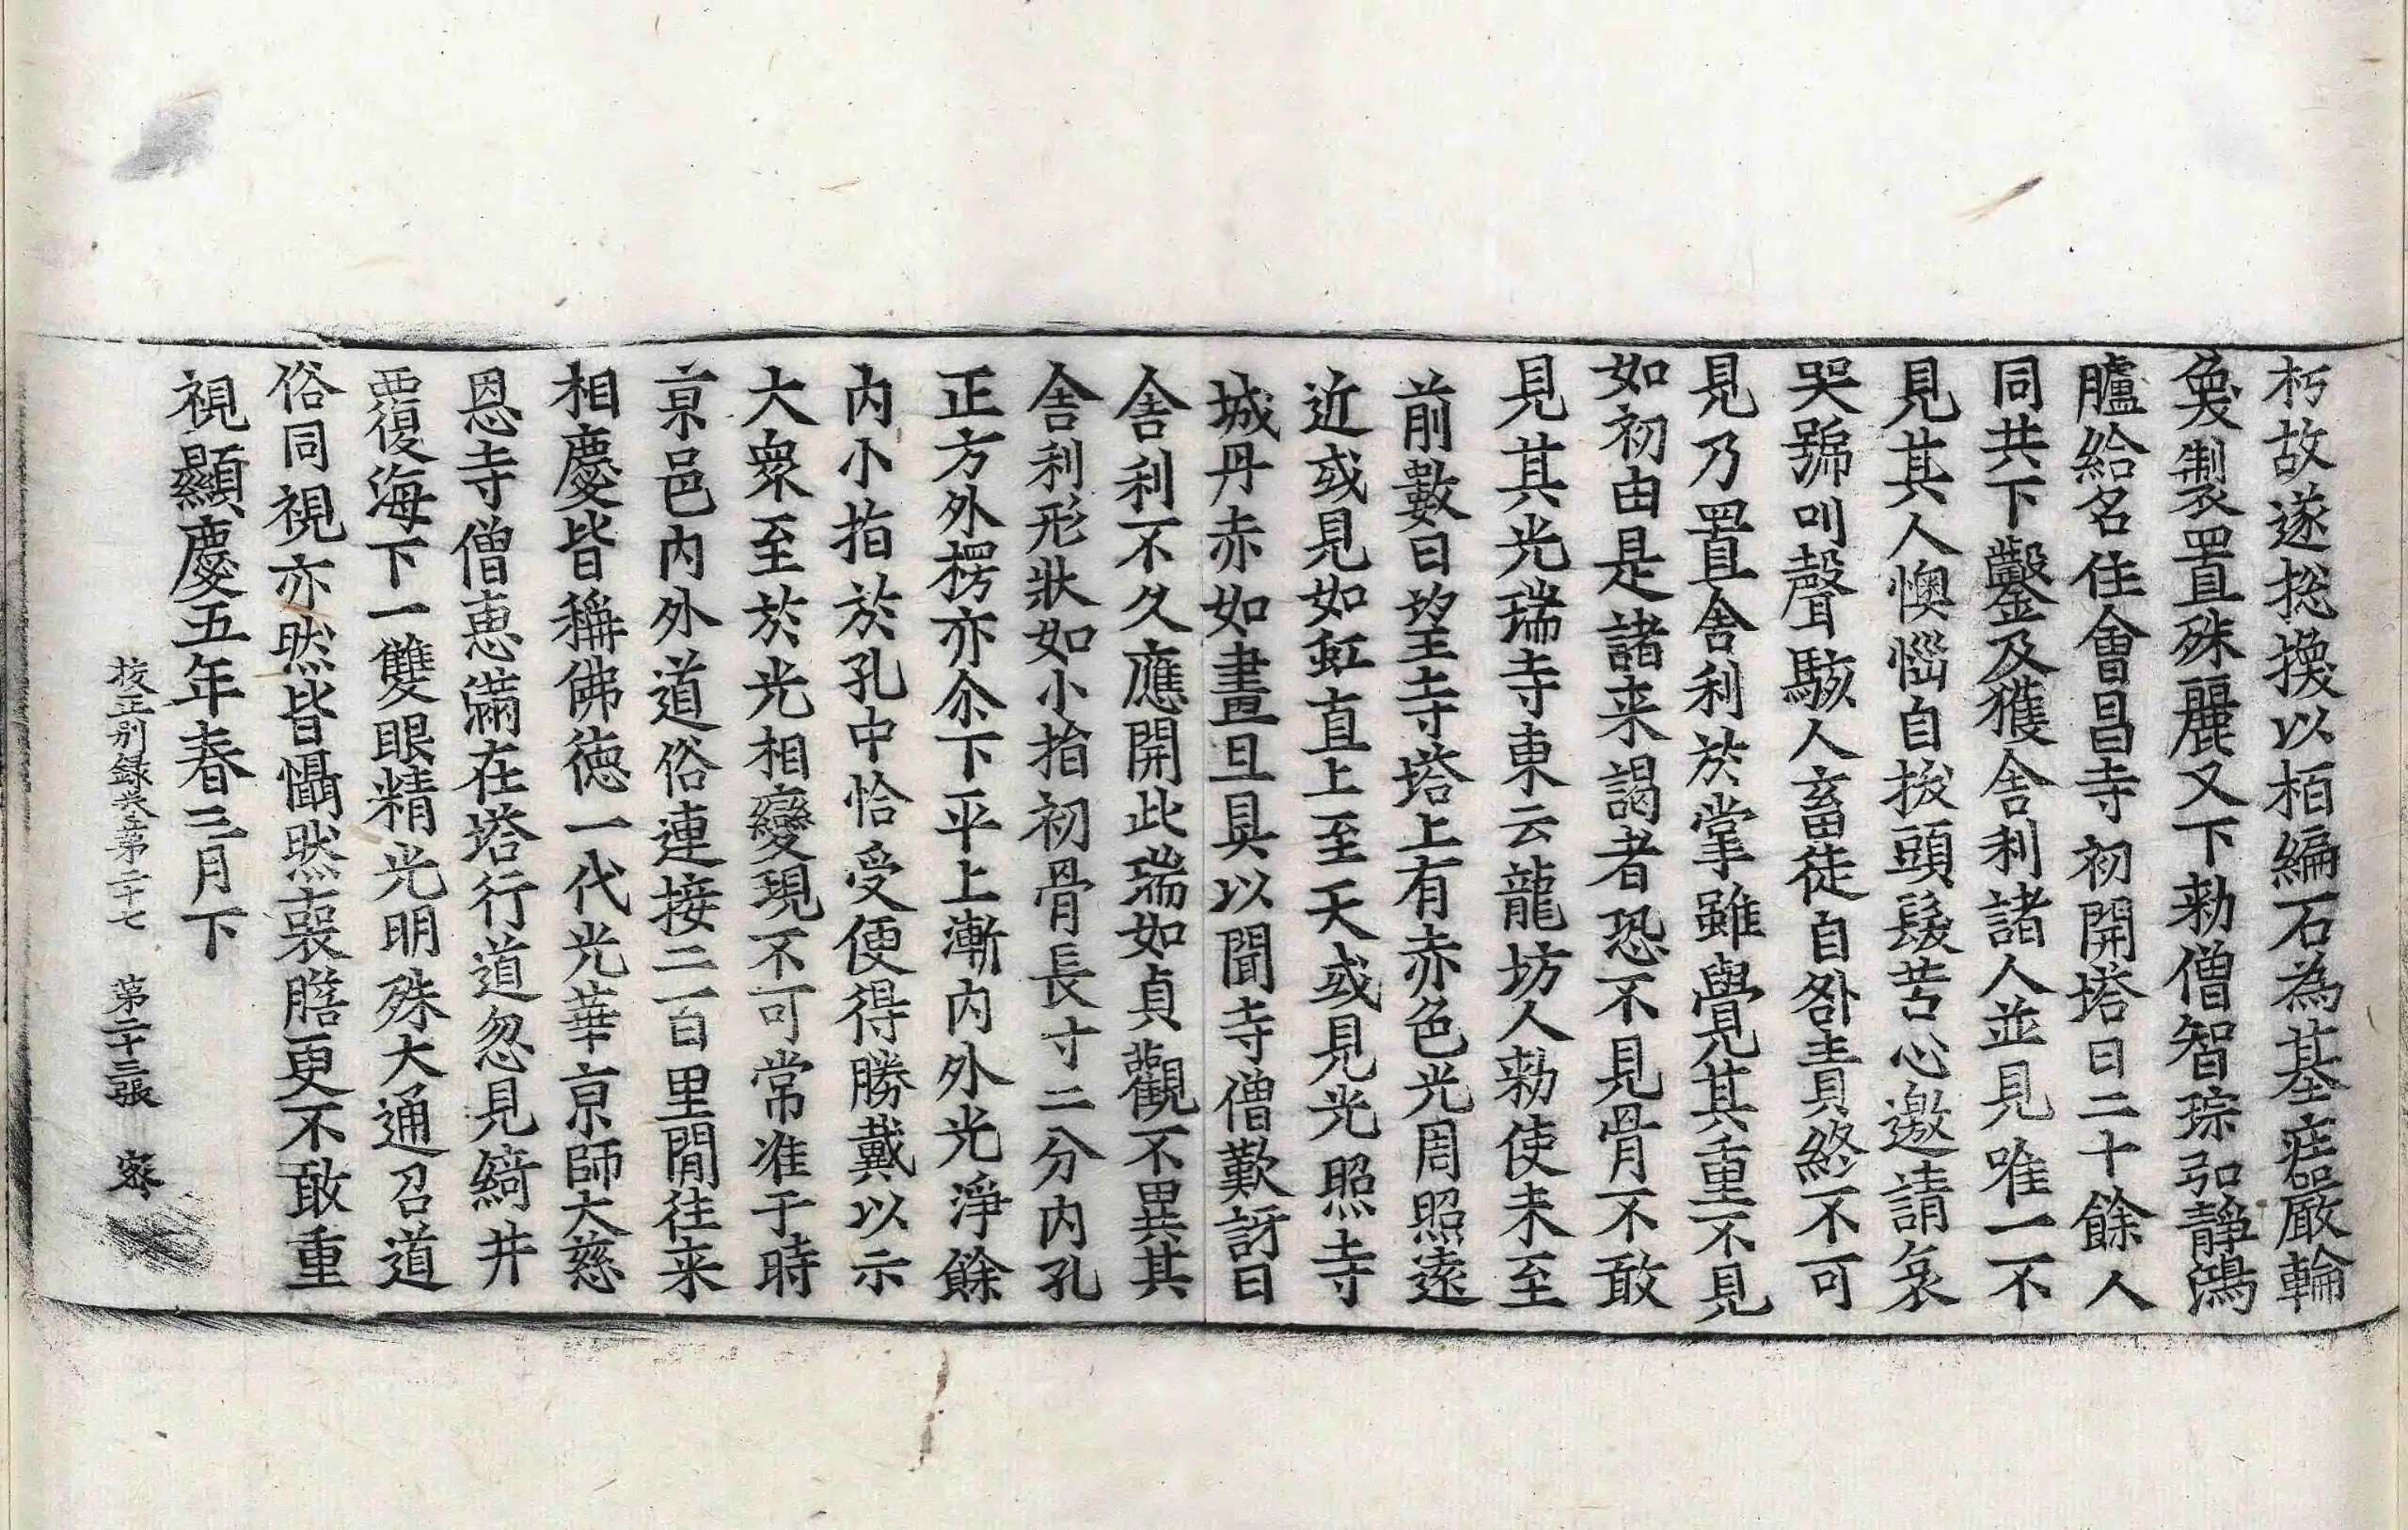 朽故遂揔換以栢編石為基莊嚴輪
奐製置殊麗又下勑僧智琮弘靜鴻
臚給名住會昌寺初開塔日二十餘人
同共下鑿及獲舍利諸人並見唯一不
見其人懊惱自拔頭髮苦心邀請哀
哭號叫聲駭人畜徒自咎責終不可
見乃置舍利於掌雖覺其重不見
如初由是諸来謁者恐不見骨不敢
見其光瑞寺東云龍坊人勑使未至
前數日望寺塔上有赤色光周照遠
近或見如虹直上至天或見光照寺
城丹赤如晝旦具以聞寺僧歎訝曰
舍利不久應開此瑞如貞觀不異其
舍利形狀如小指初骨長寸二分内孔
正方外楞亦尒下平上漸内外光淨餘
内小指於孔中恰受便得勝戴以示
大衆至於光相變現不可常准于時
京邑内外道俗連接二百里間往来
相慶皆稱佛德一代光華京師大慈
恩寺僧惠滿在塔行道忽見綺井
覆海下一雙眼精光明殊大通召道
俗同視亦然皆懾然喪膽更不敢重
視顯慶五年春三月下
校正别録卷第二十七　第二十三張　密